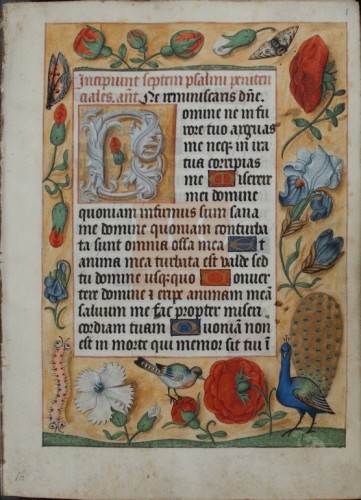 Incipiunt septem psalmi peniten
ciales. ant. Ne reminiscaris dñe.
Domine ne in fu
rore tuo arguas
me neq; in ira
tua corripias
me Miserere
mei domine
quoniam infirmus sum sana
me domine quoniam conturba
ta sunt omnia ossa mea Et
anima mea turbata est valde sed
tu domine usq;quo Conuer
tere domine & eripe animam meā
saluum me fac propter miseri
cordiam tuam Quoniā non
est in morte qui memor sit tui